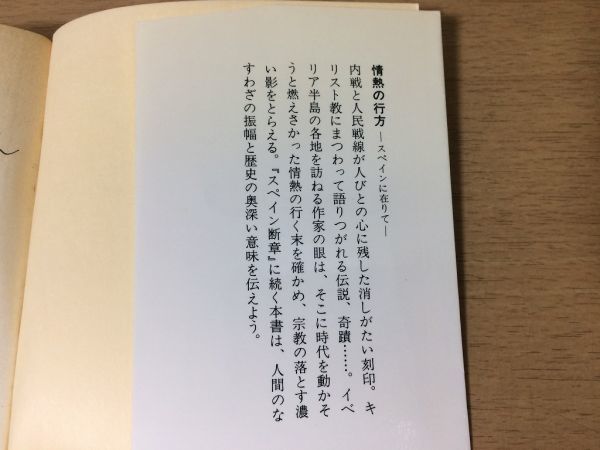 情熱の行方 ―スペインに在りて―
内戦と人民戦線が人びとの心に残した消しがたい刻印。キ
リスト教にまつわって語りつがれる伝説、奇蹟……。イベ
リア半島の各地を訪ねる作家の眼は、そこに時代を動かそ
うと燃えさかった情熱の行く末を確かめ、宗教の落とす濃
い影をとらえる。『スペイン断章』に続く本書は、人間のな
すわざの振幅と歴史の奥深い意味を伝えよう。